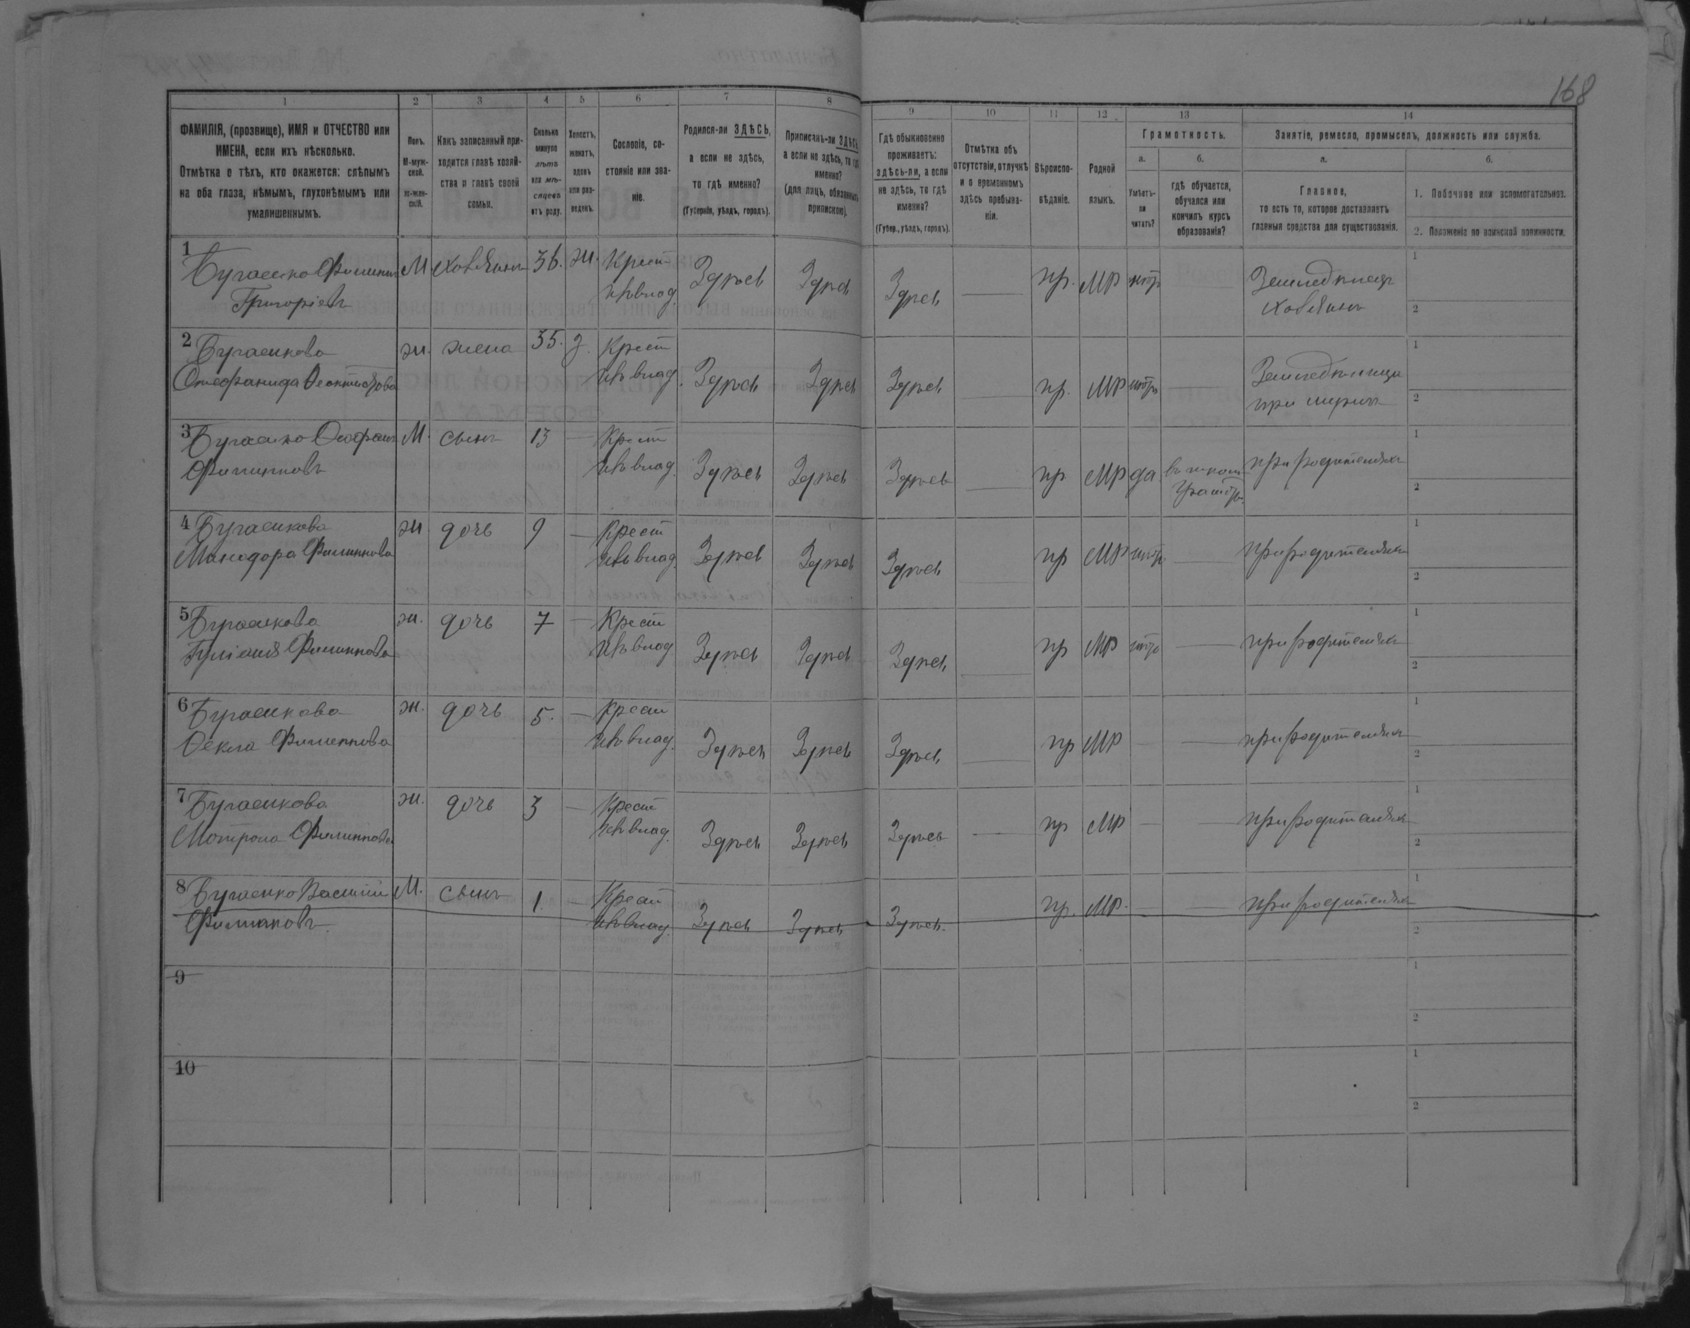 168
1
2
3
4
5
6
7
8
9
10
11
12
13
14
ФАМИЛІЯ, (прозвище), ИМЯ и ОТЧЕСТВО или ИМЕНА, если ихъ нѣсколько.
Отмѣтка о тѣхъ, кто окажется: слѣпымъ на оба глаза, нѣмымъ, глухонѣмымъ или умалишеннымъ.
Полъ.
М-муж-
ской.
Ж-жен-
скій.
Какъ записанный при-
ходится главѣ хозяй-
ства и главѣ своей
семьи.
Сколько
минуло
лѣтъ
или мѣ-
сяцевъ
отъ роду.
Холостъ,
женатъ,
вдовъ
или раз-
веденъ.
Сословіе, со-
стояніе или зва-
ніе.
Родился-ли ЗДѢСЬ,
а если не здѣсь,
то гдѣ именно?
(Губернія, уѣздъ, городъ).
Приписанъ-ли ЗДѢСЬ,
а если не здѣсь, то гдѣ
именно?
(для лицъ, обязанныхъ
припискою).
Гдѣ обыкновенно
проживаетъ:
здѣсь-ли, а если
не здѣсь, то гдѣ
именно?
(Губер., уѣздъ, городъ).
Отмѣтка объ
отсутствіи, отлучкѣ
и о временномъ
здѣсь пребыва-
ніи.
Вѣроиспо-
вѣданіе.
Родной
языкъ.
Грамотность.
а.
Умѣетъ-
ли
читать?
б.
гдѣ обучается,
обучался или
кончилъ курсъ
образованія?
Занятіе, ремесло, промыселъ, должность или служба.
а.
Главное,
то есть то, которое доставляетъ
главныя средства для существованія.
б.
1. Побочное или вспомогательное.
2. Положеніе по воинской повинности.
1 Бугаенко Филиппъ Григоріевъ М Хозяинъ 36. ж. Крест. Здѣсь Здѣсь Здѣсь — пр. МР нѣтъ Земледѣлецъ Хозяинъ 1 2
2 Бугаенкова Ѳеоктистова ж. жена 35. з. Крест. Здѣсь Здѣсь Здѣсь — пр. МР нѣтъ — Земледѣлица при мужѣ 1 2
3 Бугаенко Филипповъ М. сынъ 13 — Крест. Здѣсь Здѣсь Здѣсь — пр МР да при родителяхъ 1 2
4 Бугаенкова Филиппова ж дочь 9 — Крест. Здѣсь Здѣсь Здѣсь — пр МР нѣтъ — при родителяхъ 1 2
5 Бугаенкова Филиппова ж. дочь 7 — Крест. Здѣсь Здѣсь Здѣсь — пр МР нѣтъ — при родителяхъ 1 2
6 Бугаенкова Ѳекла Филиппова ж. дочь 5. — Крест. Здѣсь Здѣсь Здѣсь — пр МР — — при родителяхъ 1 2
7 Бугаенкова Мотрона Филиппова ж. дочь 3 — Крест. Здѣсь Здѣсь Здѣсь — пр МР — — при родителяхъ 1 2
8 Бугаенко Василій Филиповъ М. сынъ 1. — Крест. Здѣсь Здѣсь Здѣсь. пр. МР. — — при родителяхъ 1 2
9 1 2
10 1 2